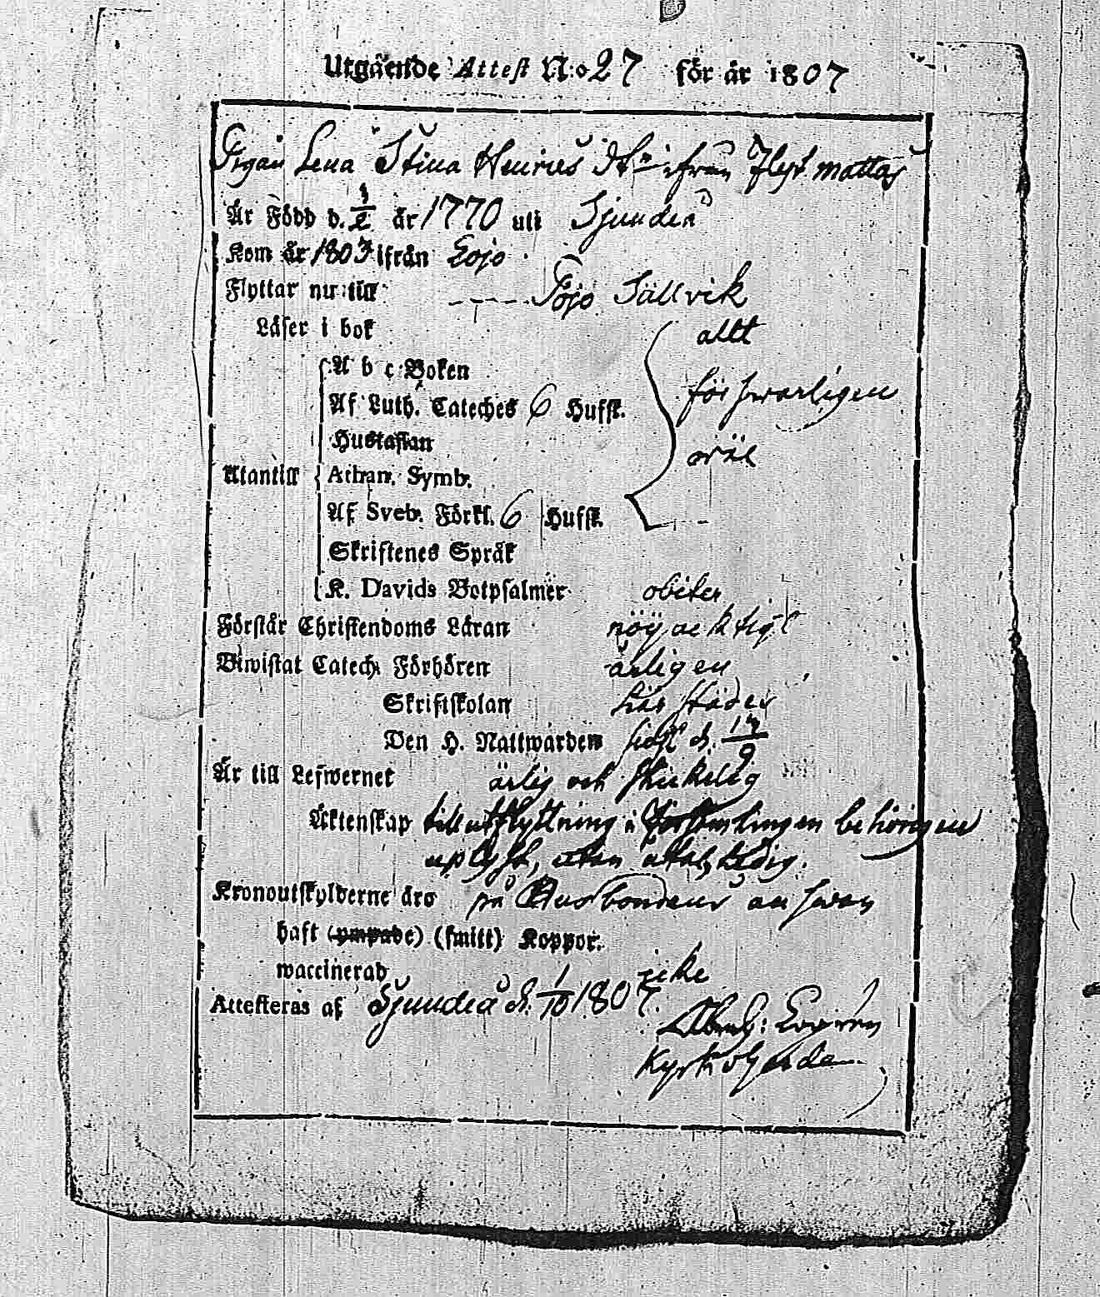 Utgående Attest N:o 27 för år 1807
Pigan Lena Stina Henrics dtr ifrån
Är Född d. år 1770 uti Sjundeå
Kom år 1803 ifrån Lojo
Flyttar nu till Pojo Sällvik
Läser i bok allt
A b c Boken
Af Luth. Cateches 6 Hufst. försvarligen
Hustaflan
Utantill Athan. Symb. wäl
Af Sveb. Förkl. 6 Hufst.
Skriftenes Språk
K. Davids Botpsalmer
Förstår Christendoms Läran nöjacktigt
Biwistat Catech. Förhören årligen
Skriftskolan här städes
Den H. Nattwarden sidst d. 17/9
Är till Lefwernet ärlig och skickelig
Äktenskap till utflyttning i Församlingen behörigen
uplyst, utan
Kronoutskylderne äro på Husbondens answar
haft (ympade) (smitt) Koppor.
waccinerad icke
Attesteras af Sjundeå d. 1/10 1807.
Kyrkoherde